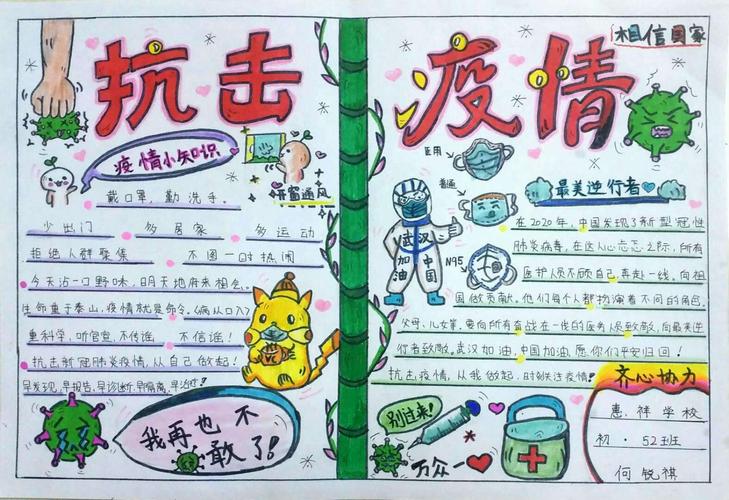 抗击
疫情
相信国家
疫情小知识
开窗通风
戴口罩，勤洗手。
少出门 多居家 多运动
拒绝人群聚集 不图一时热闹
今天沾一口野味，明天地府来相会。
生命重于泰山，疫情就是命令。《病从口入》
重科学，听官宣，不传谣！不信谣！
抗击新冠肺炎疫情，从自己做起！
早发现，早报告，早诊断，早隔离，早治疗！
我再也不
敢了！
医用
普通
N95
武汉
加油
中国
最美逆行者
在2020年，中国发现了新型冠性
肺炎病毒，在这人心忐忑之际，所有
医护人员不顾自己，奔赴一线。向祖
国做贡献。他们每个人都扮演着不同的角色。
父母，儿女等。要向所有奋战在一线的医务人员致敬，向最美逆
行者致敬。武汉加油，中国加油，愿你们平安归回！
抗击疫情，从我做起，时刻关注疫情！
别过来！
万众一
齐心协力
惠祥学校
初·52班
何锐祺